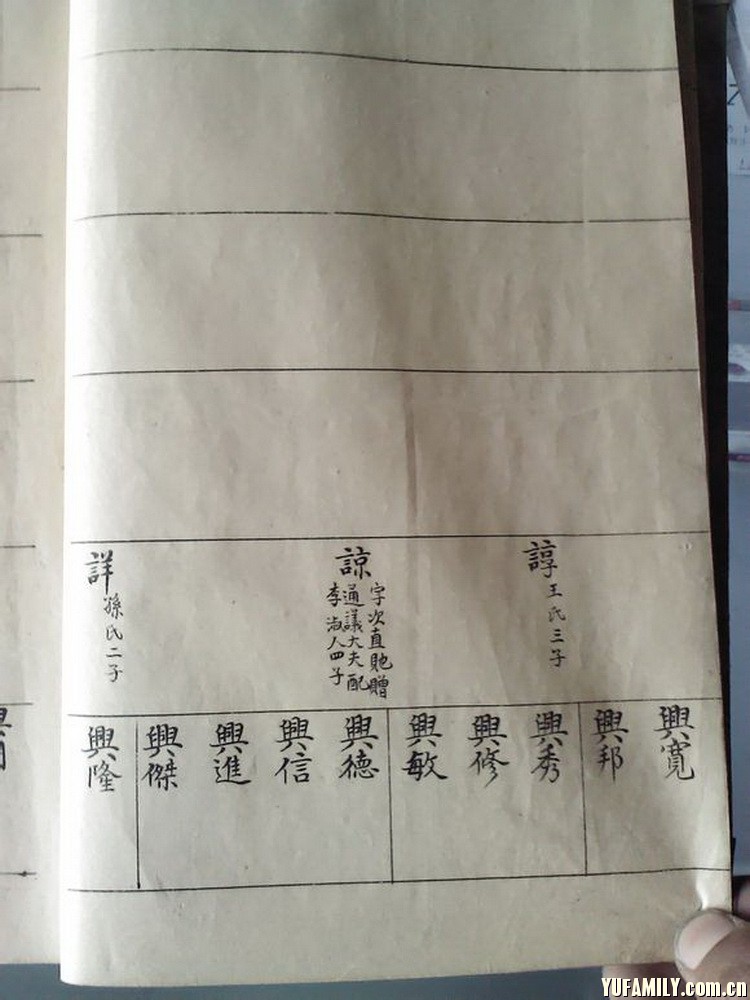 諄
王氏三子
諒
字次直貤贈
通議大夫配
李淑人四子
詳
孫氏二子
興寬
興邦
興秀
興修
興敏
興德
興信
興進
興傑
興隆
YUFAMILY.com.cn